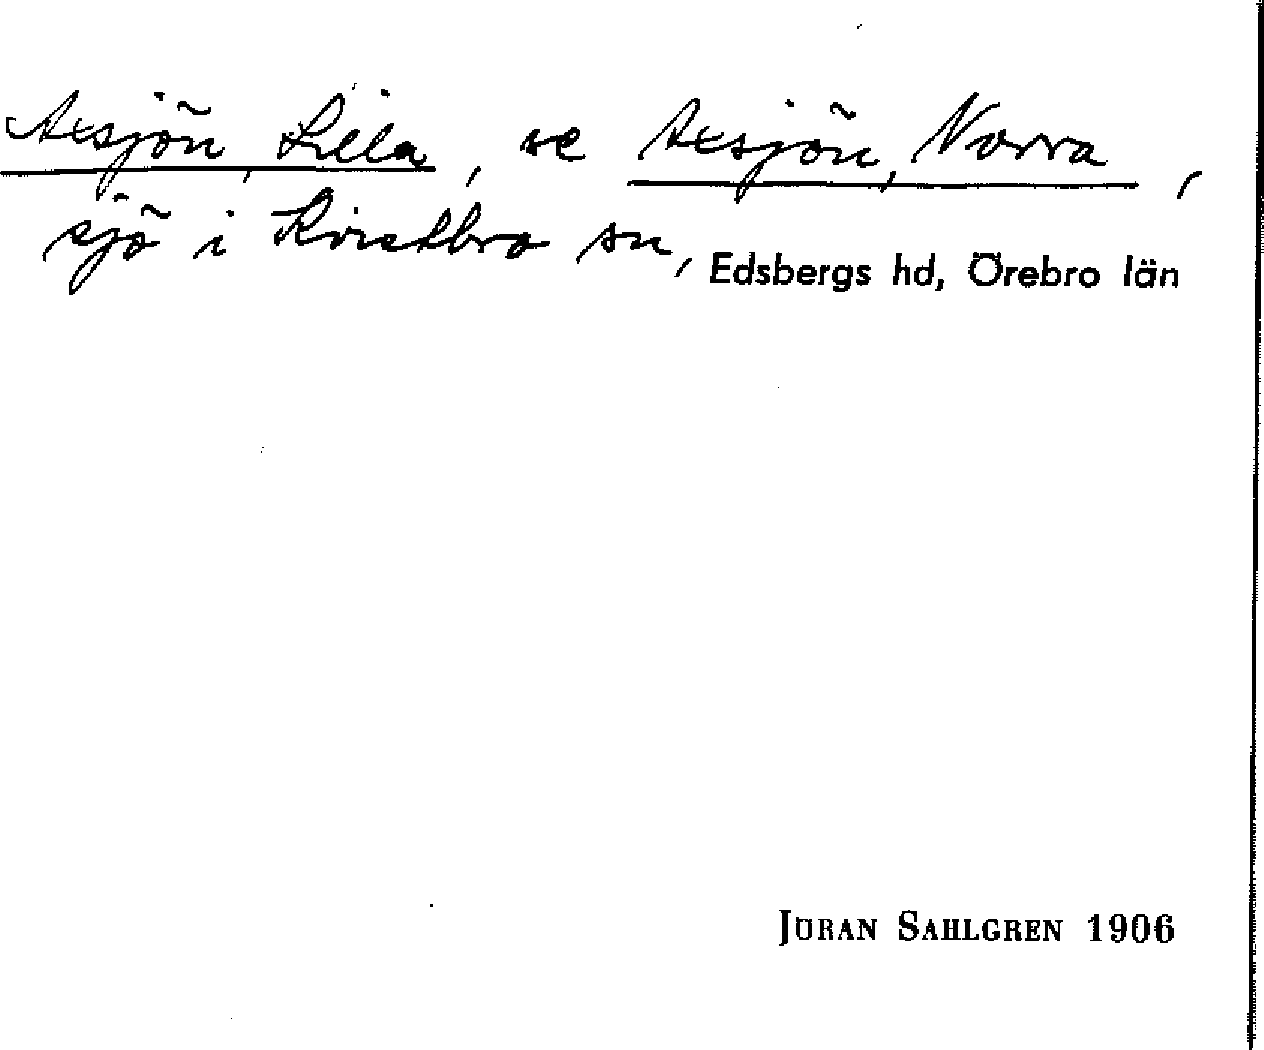 Axsjön, Lilla, se Axsjön, Norra,
sjö i Kvistbro sn, Edsbergs hd, Örebro län
JÖRAN SAHLGREN 1906